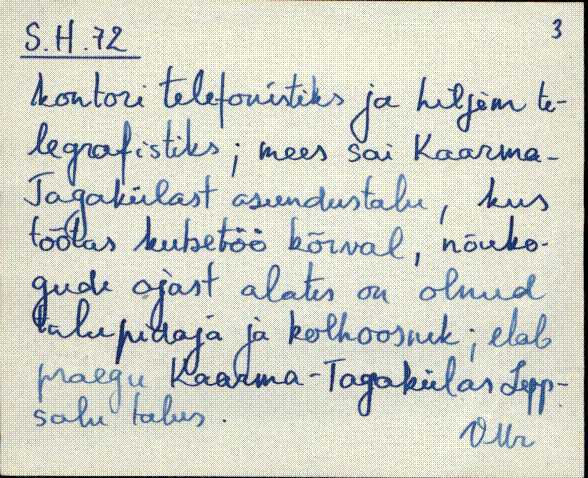 S.H.72
3
kontori telefonistiks ja hiljem te-
legrafistiks; mees sai Kaarma-
Tagakülast asundustalu, kus
töötas kutsetöö kõrval, nõuko-
gude ajast alates on olnud
talupidaja ja kolhoosnik; elab
praegu Kaarma-Tagakülas Lepp-
salu talus.